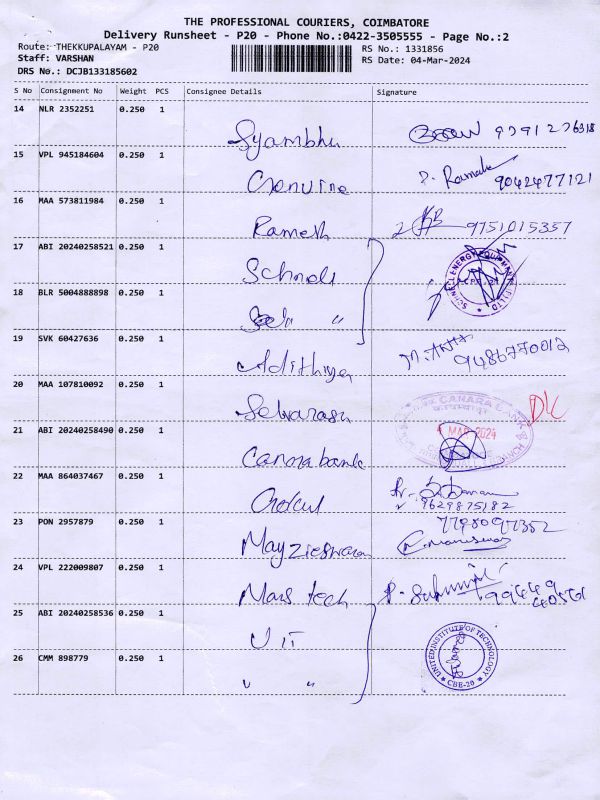 THE PROFESSIONAL COURIERS, COIMBATORE
Delivery Runsheet - P20 - Phone No.:0422-3505555 - Page No.:2
Route: THEKKUPALAYAM - P20
Staff: VARSHAN
DRS No.: DCJB133185602
RS No.: 1331856
RS Date: 04-Mar-2024
S No Consignment No Weight PCS Consignee Details Signature
14 NLR 2352251 0.250 1
Syambhu 9791276318
15 VPL 945184604 0.250 1
Genuine 9042477121
16 MAA 573811984 0.250 1
Ramesh 9751015357
17 ABI 20240258521 0.250 1
Schnell
18 BLR 5004888898 0.250 1
"
19 SVK 60427636 0.250 1
Adithya 9486770012
20 MAA 107810092 0.250 1
Selvarasu
CANARA BANK
DLC
21 ABI 20240258490 0.250 1
4 MAR 2024
Canara bank
22 MAA 864037467 0.250 1
9629875182
23 PON 2957879 0.250 1
7798097352
24 VPL 222009807 0.250 1
Mars tech
25 ABI 20240258536 0.250 1
UIT
UNITED INSTITUTE OF TECHNOLOGY
CBE-20
26 CMM 898779 0.250 1
" "